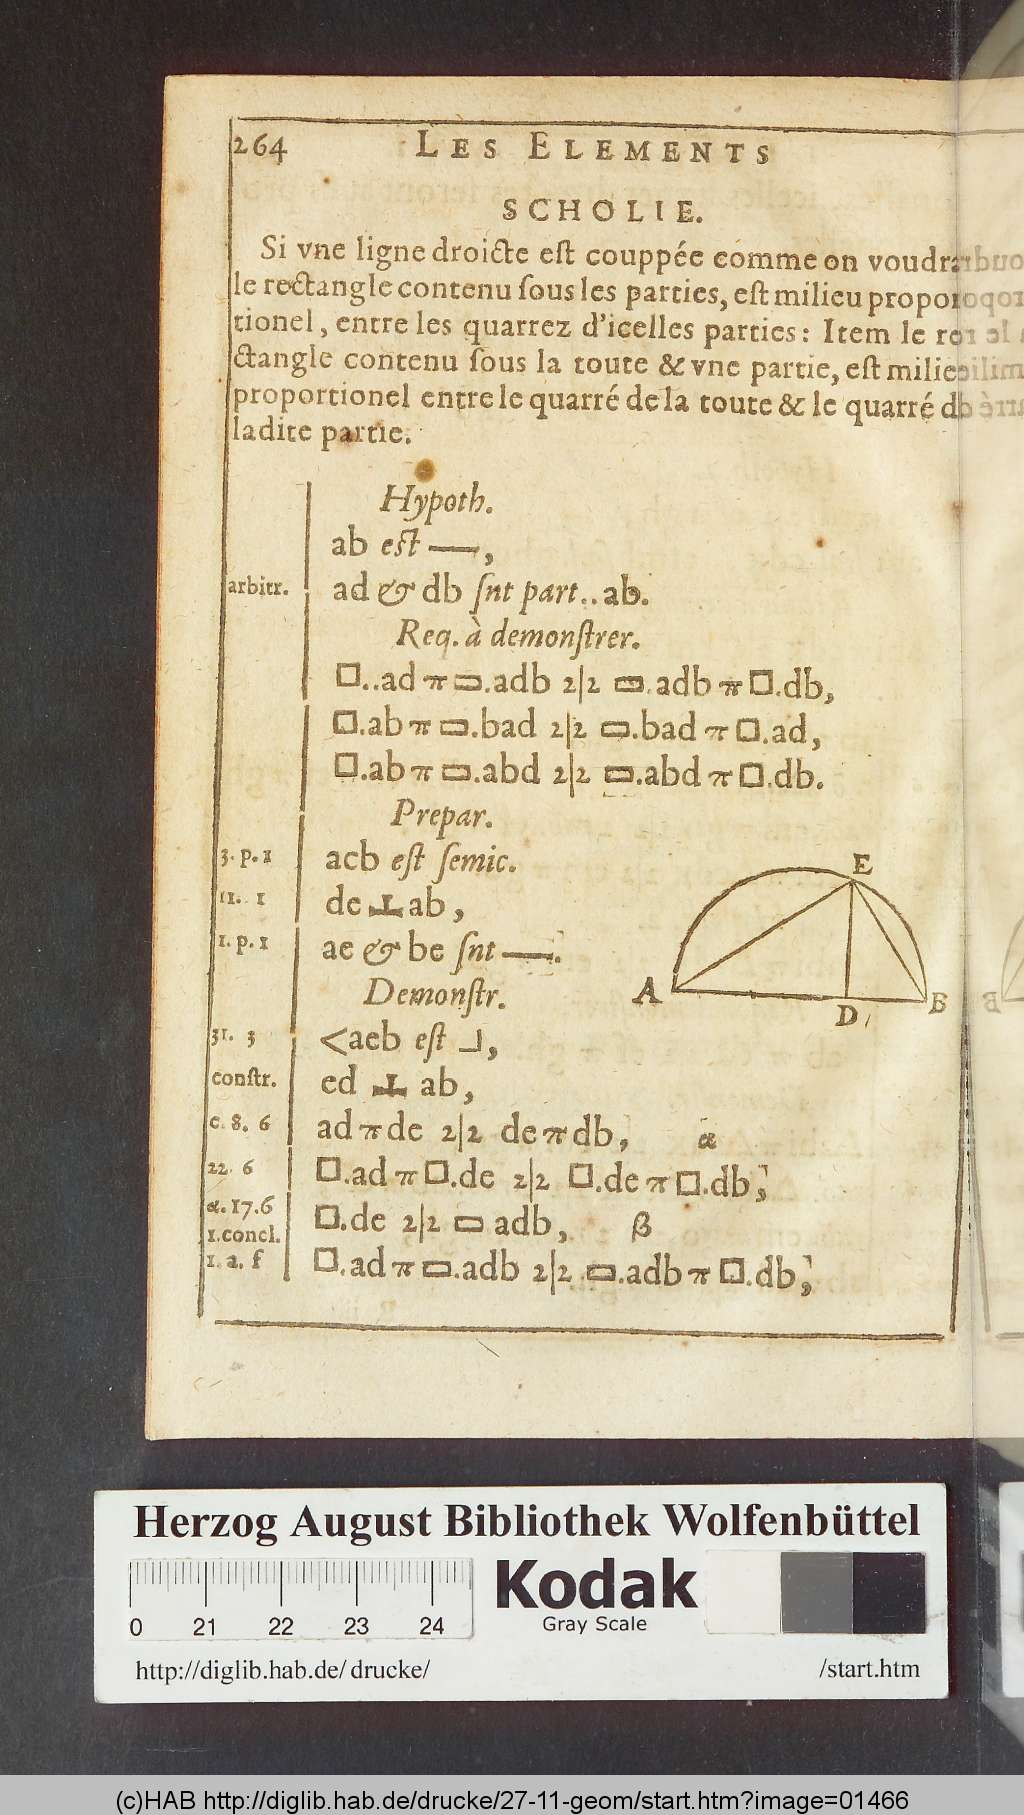 264 LES ELEMENTS
SCHOLIE.
Si vne ligne droicte est couppée comme on voudra
le rectangle contenu sous les parties, est milieu propor
tionel, entre les quarrez d'icelles parties: Item le re
ctangle contenu sous la toute & vne partie, est milieu
proportionel entre le quarré de la toute & le quarré d
ladite partie.
Hypoth.
ab est —,
arbitr. ad & db snt part..ab.
Req. à demonstrer.
□..ad π ▭.adb 2|2 ▭.adb π □.db,
□.ab π ▭.bad 2|2 ▭.bad π □.ad,
□.ab π ▭.abd 2|2 ▭.abd π □.db.
Prepar.
3. p. 1 acb est semic.
11. 1 de ⊥ ab,
1. p. 1 ae & be snt —.
Demonstr.
31. 3 <aeb est ⅃,
constr. ed ⊥ ab,
c. 8. 6 ad π de 2|2 de π db, α
22. 6 □.ad π □.de 2|2 □.de π □.db,
α. 17. 6 □.de 2|2 ▭ adb, β
1. concl.
1. a. f □.ad π ▭.adb 2|2 ▭.adb π □.db,
E
A
D
B
Herzog August Bibliothek Wolfenbüttel
0 21 22 23 24
Kodak
Gray Scale
http://diglib.hab.de/drucke/ /start.htm
(c)HAB http://diglib.hab.de/drucke/27-11-geom/start.htm?image=01466